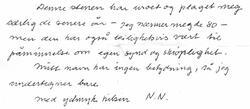 Denne stenen har uroet og plaget meg
særlig de senere år - Jeg nærmer meg de 80 -
men den har også leilighetsvis vært til
påminnelse om egen synd og skrøplighet.
Mitt navn har ingen betydning, så jeg
undertegner bare.
med ydmyk hilsen N.N.